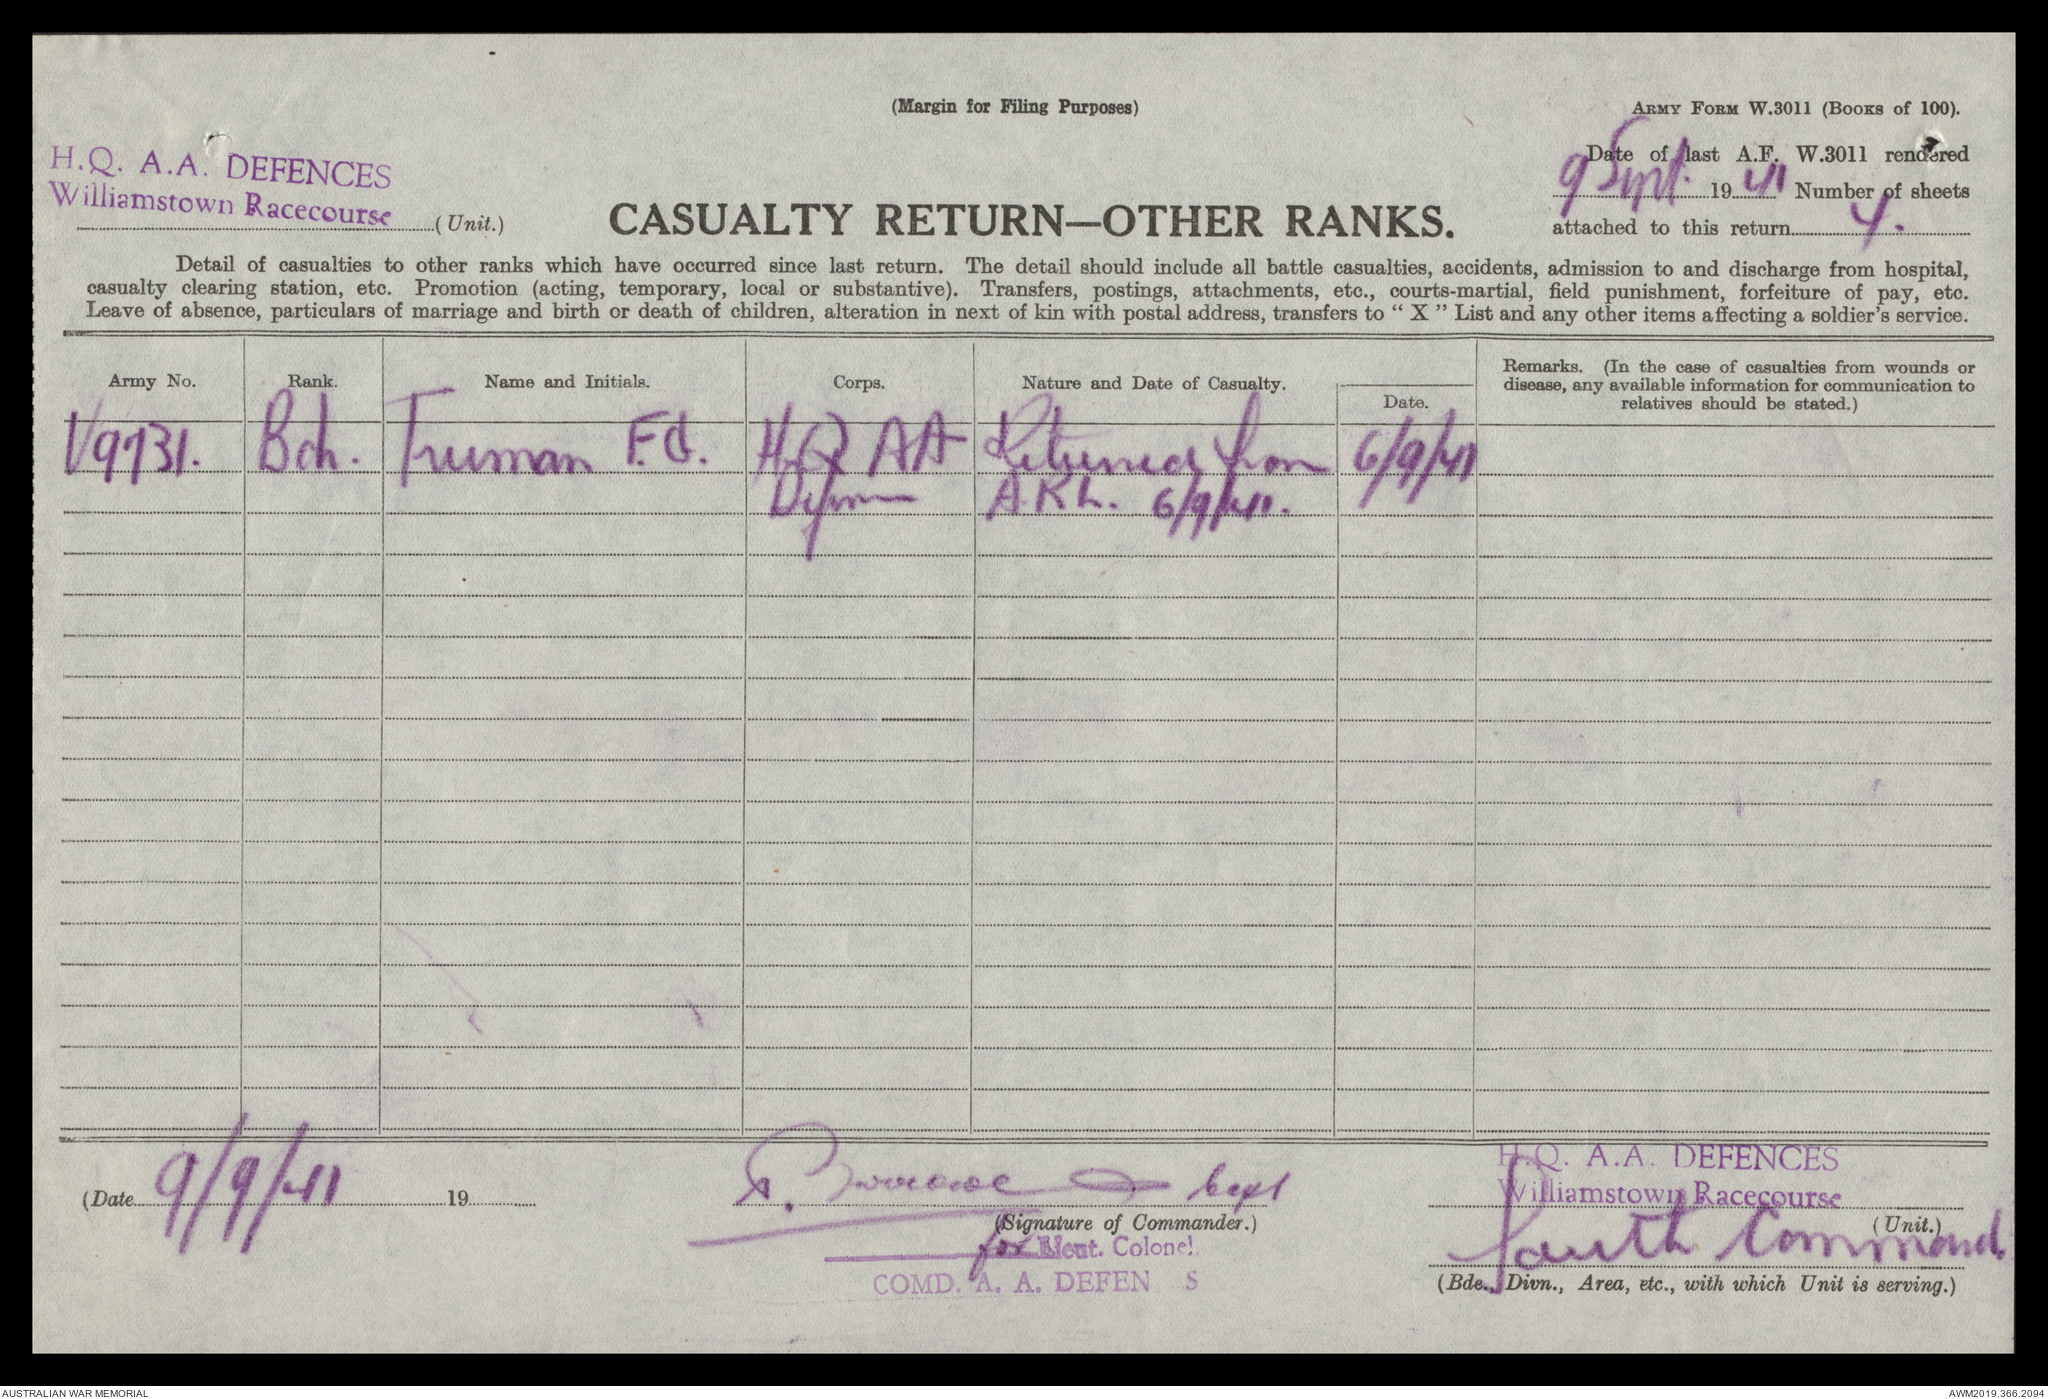 (Margin for Filing Purposes)
ARMY FORM W.3011 (BOOKS of 100).
H.Q. A.A. DEFENCES
Williamstown Racecourse
(Unit.)
CASUALTY RETURN—OTHER RANKS.
Date of last A.F. W.3011 rendered
9 Sept. 1941 Number of sheets
attached to this return 4.
Detail of casualties to other ranks which have occurred since last return. The detail should include all battle casualties, accidents, admission to and discharge from hospital,
casualty clearing station, etc. Promotion (acting, temporary, local or substantive). Transfers, postings, attachments, etc., courts-martial, field punishment, forfeiture of pay, etc.
Leave of absence, particulars of marriage and birth or death of children, alteration in next of kin with postal address, transfers to “ X ” List and any other items affecting a soldier's service.
Army No. Rank. Name and Initials. Corps. Nature and Date of Casualty. Date.
Remarks. (In the case of casualties from wounds or
disease, any available information for communication to
relatives should be stated.)
V9731. Truman F.G. H.Q AA Returned from 6/9/41
A.K.H. 6/9/41.
(Date 9/9/41 19
Capt
(Signature of Commander.)
for Lieut. Colonel
COMD. A. A. DEFEN S
H.Q. A.A. DEFENCES
Williamstown Racecourse
(Unit.)
South Command
(Bde., Divn., Area, etc., with which Unit is serving.)
AUSTRALIAN WAR MEMORIAL
AWM2019.366.2094